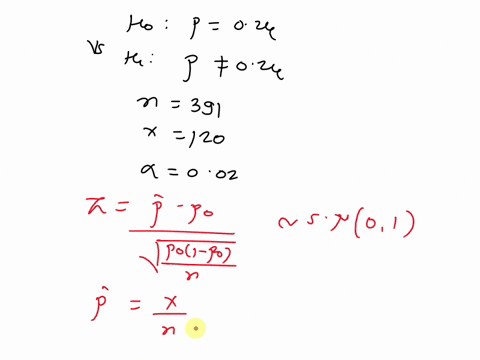 H₀: p = 0.24
Vs
H₁: p ≠ 0.24
n = 391
x = 120
α = 0.02
Z = (p̂ - p₀) / √(p₀(1-p₀)/n) ~ S.N(0,1)
p̂ = x/n